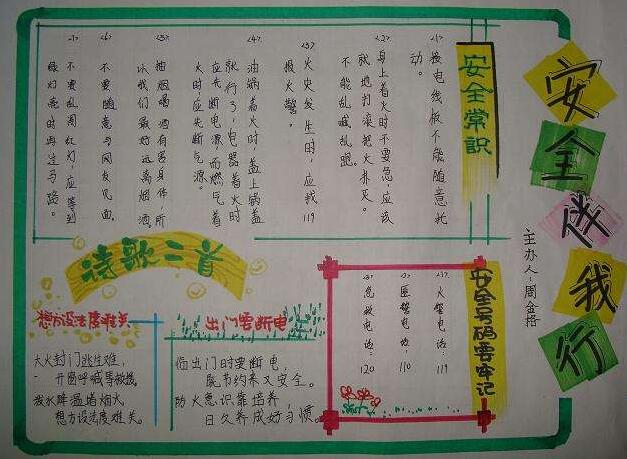 安全伴我行
主办人:周金格
安全常识
<1>接电线板不能随意扯
动。
<2>身上着火时不要急,应该
就地打滚把火扑灭。
不能乱喊乱跑。
<3>火灾发生时,应拔119
报火警。
<4>油锅着火时,盖上锅盖
就行了,电器着火时
应先断电源,而燃气着
火时,应先断气源。
<5>抽烟喝酒有害身体,所
以我们最好远离烟酒。
<6>不要随意与网友见面。
<7>不要乱闯红灯,应等到
绿灯亮时再过马路。
诗歌二首
想方设法度难关
大火封门逃生难,
开窗呼喊等救援。
泼水降温堵烟火
想方设法度难关。
出门要断电
临出门时要断电,
既节约来又安全。
防火意识靠培养,
日久养成好习惯。
安全号码要牢记
<1>火警电话:119
<2>匪警电话:110
<3>急救电话:120